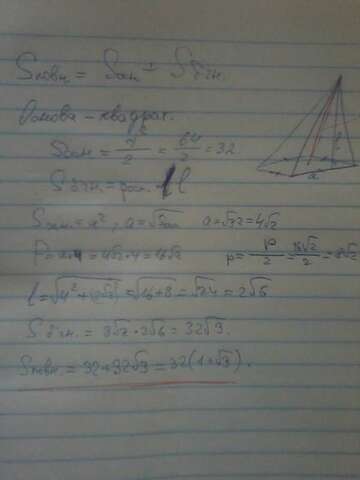 Sповн. = Sосн + Sбічн.
Основа - квадрат.
Sосн = /2 = 64/2 = 32
Sбічн. = pосн. · l
Sосн. = a², a = √Sосн a = √32 = 4√2
P = a·4 = 4√2·4 = 16√2 p = P/2 = 16√2/2 = 8√2
l = √4²+(2√2)² = √16+8 = √24 = 2√6
Sбічн. = 8√2 · 2√6 = 32√3.
Sповн. = 32+32√3 = 32(1+√3).
a